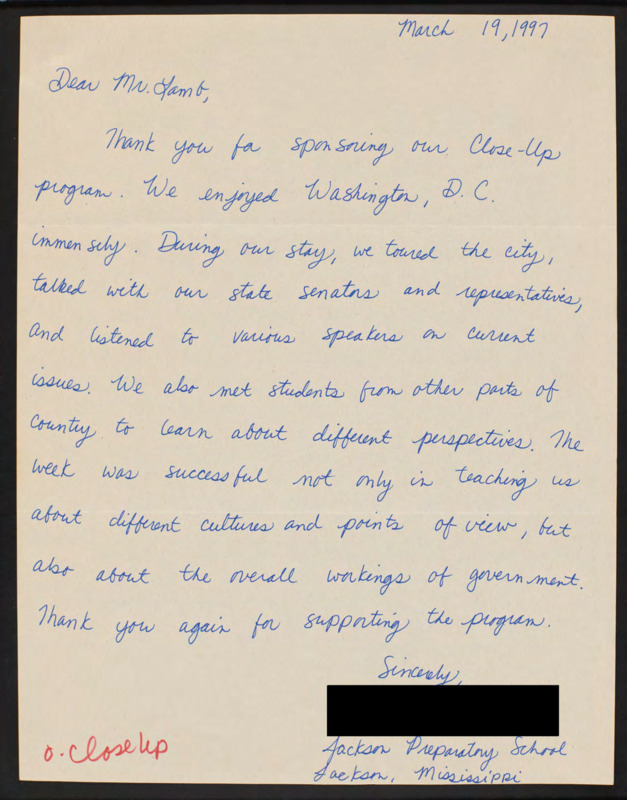 March 19, 1997
Dear Mr. Lamb,
Thank you for sponsoring our Close-Up
program. We enjoyed Washington, D.C.
immensely. During our stay, we toured the city,
talked with our state senators and representatives,
and listened to various speakers on current
issues. We also met students from other parts of
country to learn about different perspectives. The
week was successful not only in teaching us
about different cultures and points of view, but
also about the overall workings of government.
Thank you again for supporting the program.
Sincerely,
Jackson Preparatory School
Jackson, Mississippi
o. Close Up